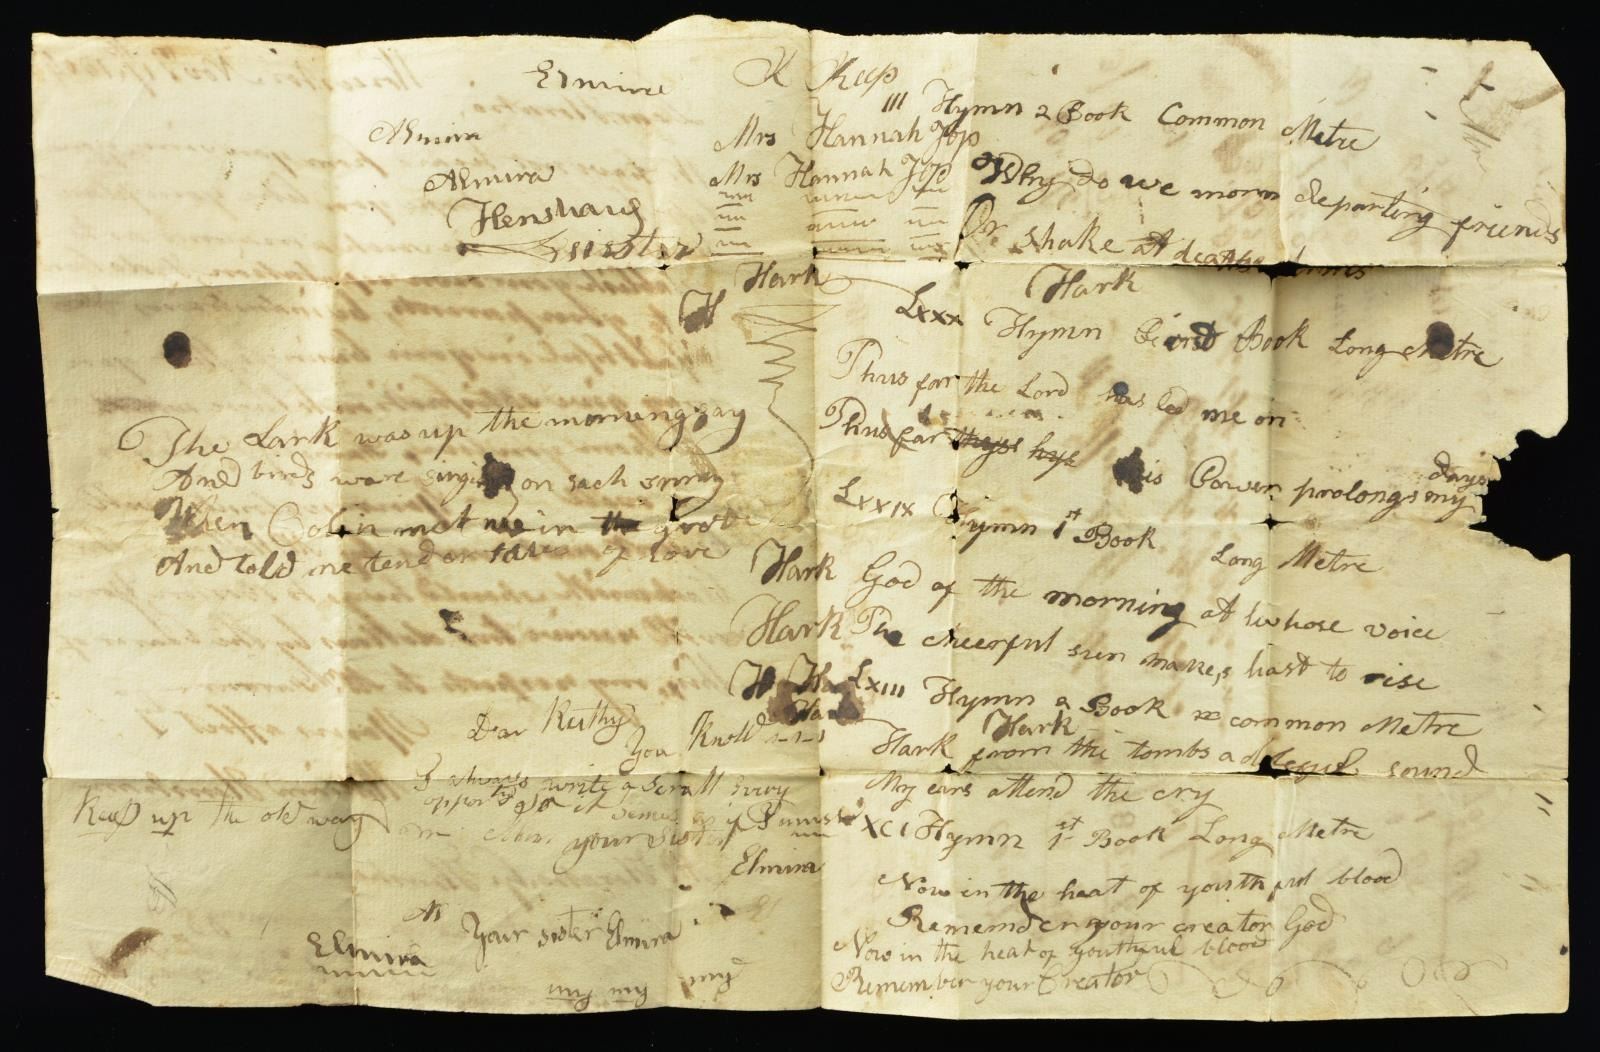 Elmira
Almira
Almira
Henshaw
K Keep
Mrs Hannah Jop
Mrs Hannah Jop
III Hymn 2 Book Common Metre
Why do we morn departing friends
Or shake at deaths
Hark
H
Hark
Lxxx Hymn Book Long Metre
Thus far the Lord has led me on
Thus far his Power prolongs my days
The Lark was up the morning gay
And birds ware singing on each spray
When Colin met me in the grove
And told me tender tales of love
LxxIx Hymn 1st Book Long Metre
Hark God of the morning at whose voice
Hark The cheerful sun makes hast to rise
H Ha LxIII Hymn 2 Book common Metre
Ha
Hark
Hark from the tombs a doleful sound
My ears attend the cry
Dear Ruthy
You Know
I always write a scrall every
opportu
your Sister
Elmira
Keep up the old way
XCI Hymn 1st Book Long Metre
Now in the heat of youthful blood
Rememder your creator God
Now in the heat of youthful blood
Remember your Creator
Your sister Elmira
Elmira
my my my